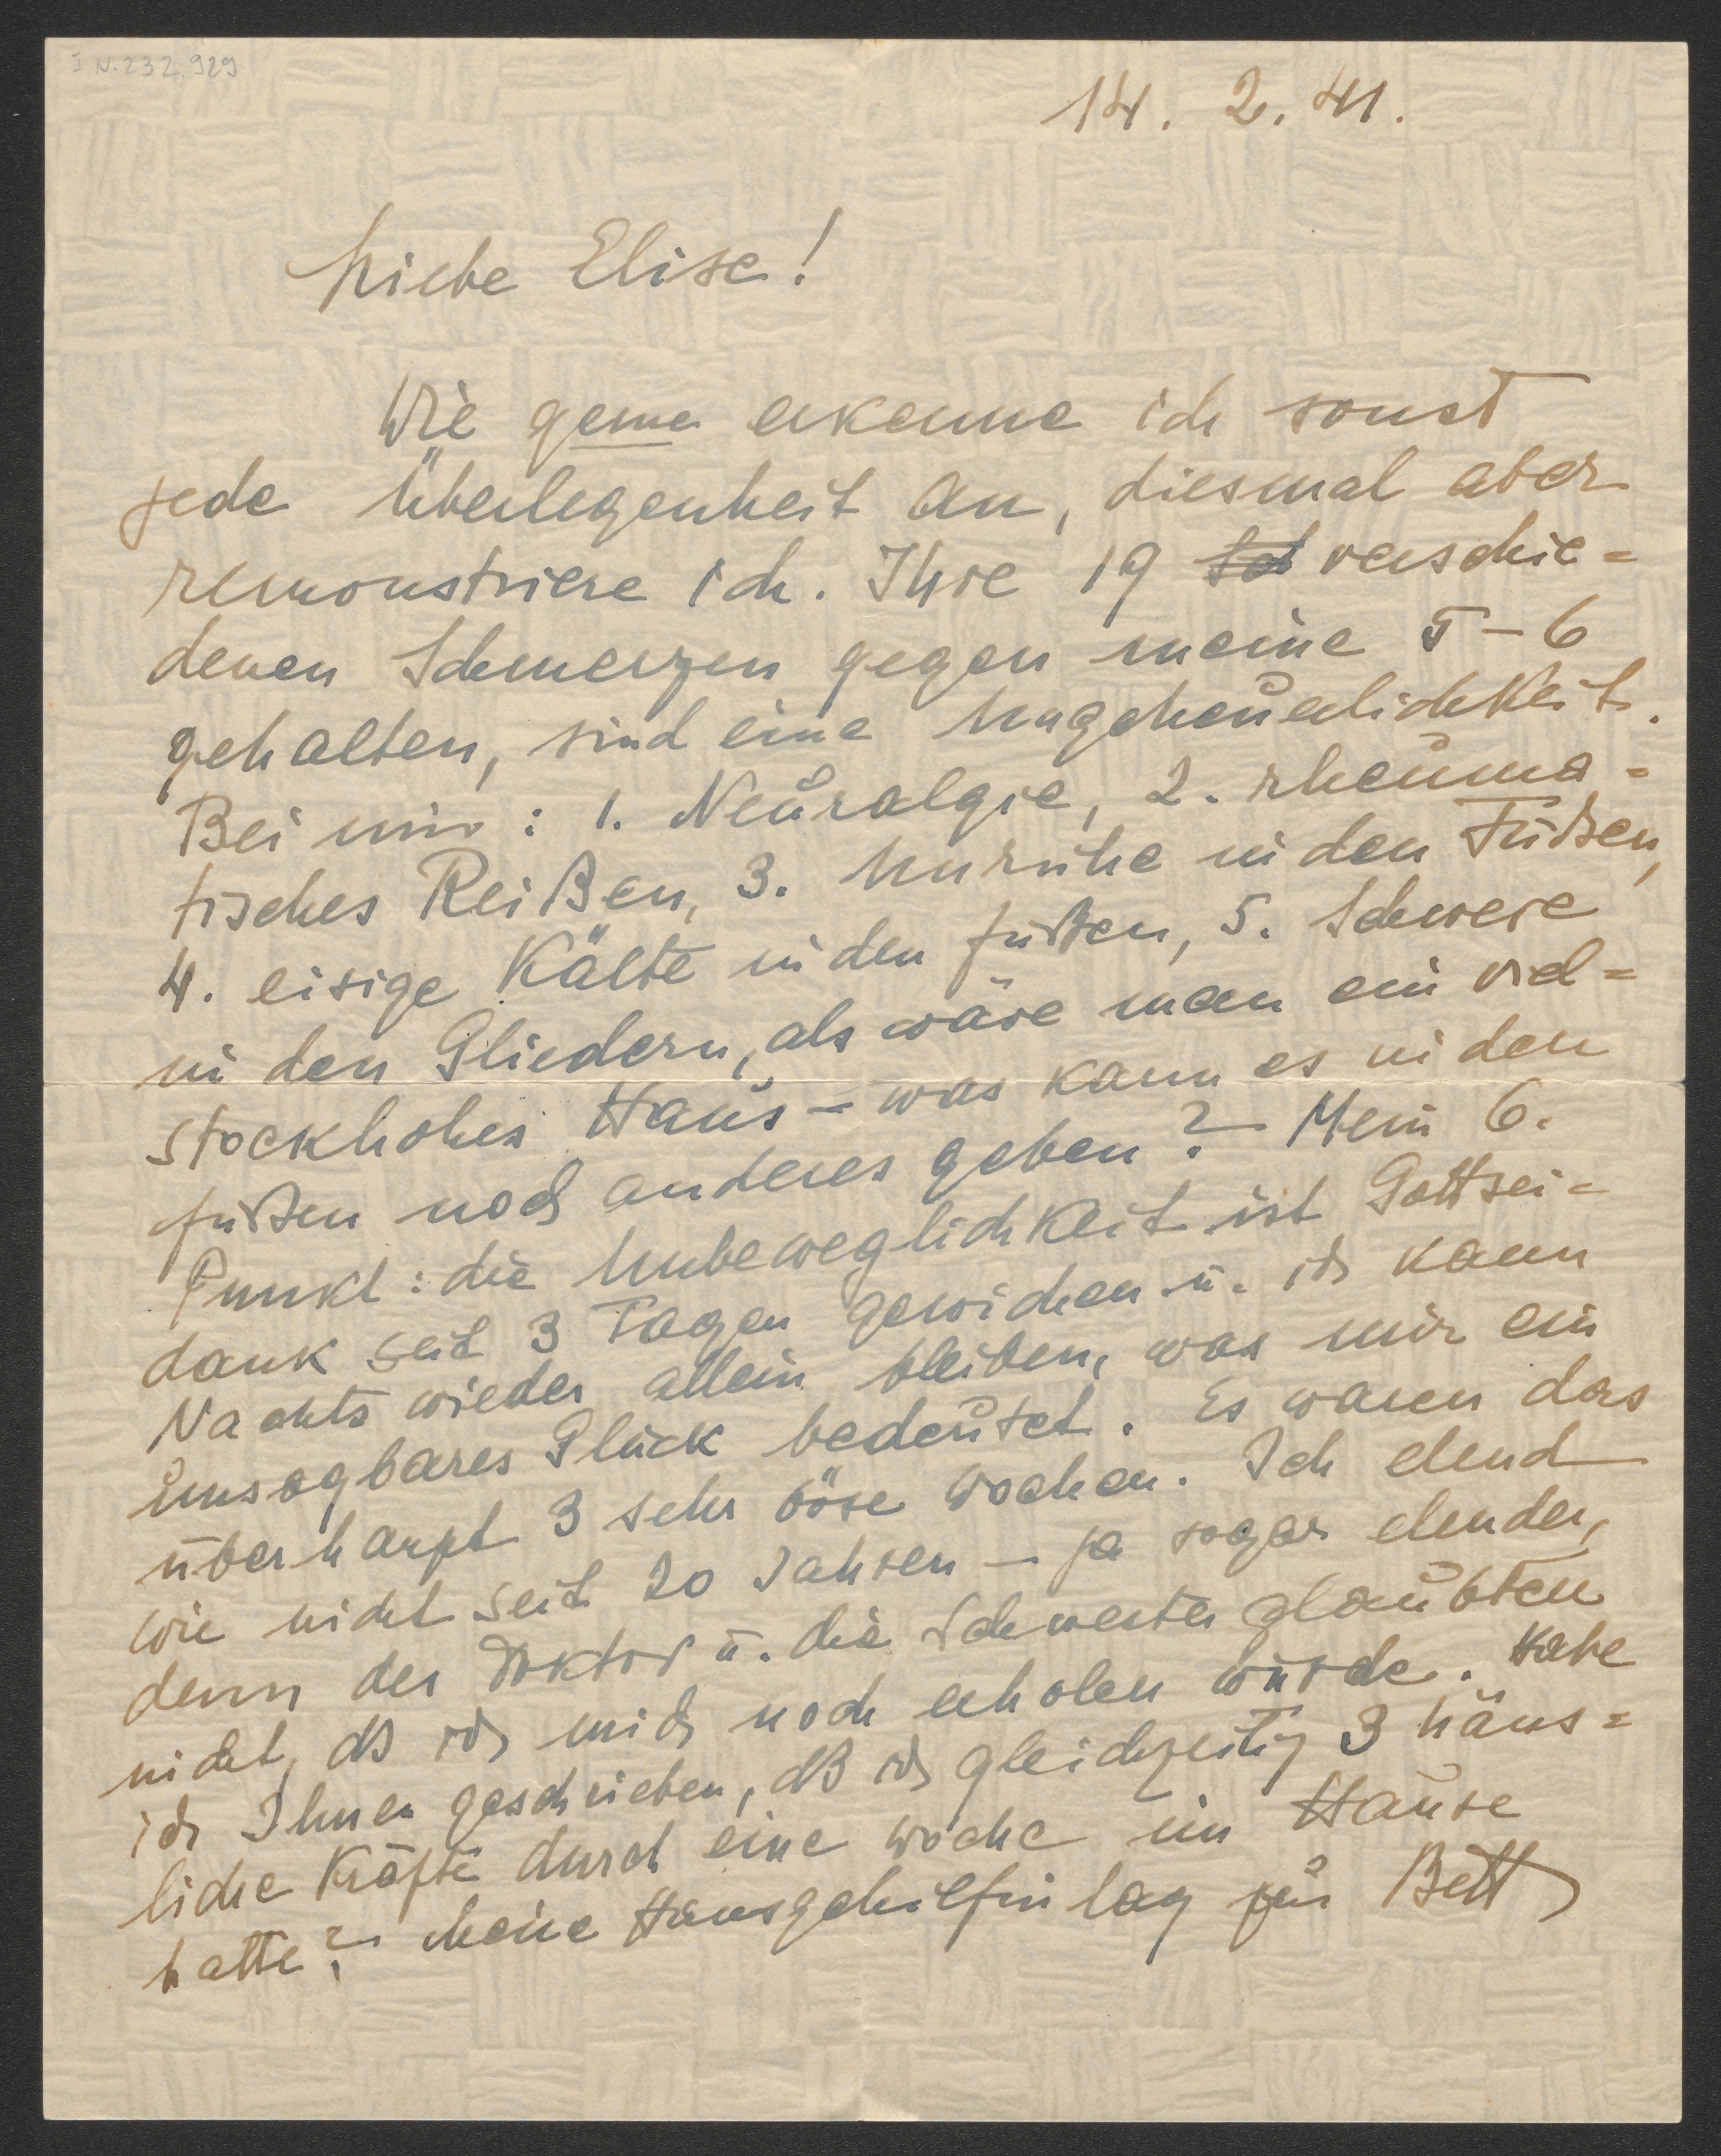 I N. 232.929
14. 2. 41.
Liebe Elise!
Wie gerne erkenne ich sonst
jede Überlegenheit an, diesmal aber
remonstriere ich. Ihre 19 Sch verschie=
denen Schmerzen gegen meine 5-6
gehalten, sind eine Ungeheuerlichkeit.
Bei mir: 1. Neuralgie, 2. rheuma=
tisches Reißen, 3. Unruhe in den Füßen,
4. eisige Kälte in den Füßen, 5. Schwere
in den Gliedern, als wäre man ein viel=
stockhohes Haus – was kann es in den
Füßen noch anderes geben? Mein 6.
Punkt: die Unbeweglichkeit ist Gottsei=
dank seit 3 Tagen gewichen u. ich kann
Nachts wieder allein bleiben, was mir ein
unsagbares Glück bedeutet. Es waren das
überhaupt 3 sehr böse Wochen. Ich elend
wie nicht seit 20 Jahren – ja sogar elender,
denn der Doktor u. die Schwester glaubten
nicht, dß ich mich noch erholen würde. Habe
ich Ihnen geschrieben, dß ich gleichzeitig 3 häus=
liche Kräfte durch eine Woche im Hause
hatte? Meine Hausgehilfin lag zu Bett